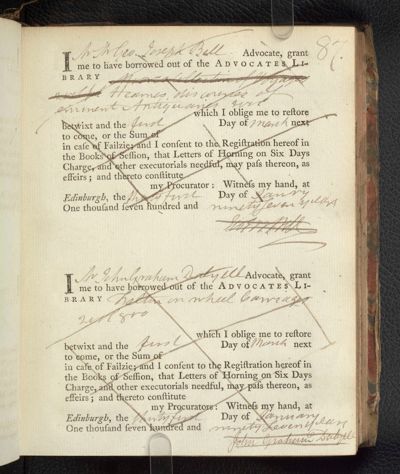 87.
I Mr Geo. Joseph Bell Advocate, grant
me to have borrowed out of the ADVOCATES LI-
BRARY
Hearnes discourses of
eminent Antiquaries
which I oblige me to reſtore
betwixt and the first Day of March next
to come, or the Sum of
in caſe of Failzie; and I conſent to the Regiſtration hereof in
the Books of Seſſion, that Letters of Horning on Six Days
Charge, and other executorials needful, may paſs thereon, as
effeirs; and thereto conſtitute
my Procurator: Witneſs my hand, at
Edinburgh, the Day of
One thouſand ſeven hundred and ninety seven years
I Mr John Graham Dalyell Advocate, grant
me to have borrowed out of the ADVOCATES LI-
BRARY on wheel Carriages
which I oblige me to reſtore
betwixt and the first Day of March next
to come, or the Sum of
in caſe of Failzie; and I conſent to the Regiſtration hereof in
the Books of Seſſion, that Letters of Horning on Six Days
Charge, and other executorials needful, may paſs thereon, as
effeirs; and thereto conſtitute
my Procurator: Witneſs my hand, at
Edinburgh, the twenty first Day of January
One thouſand ſeven hundred and ninety seven years
John Graham Dalyell